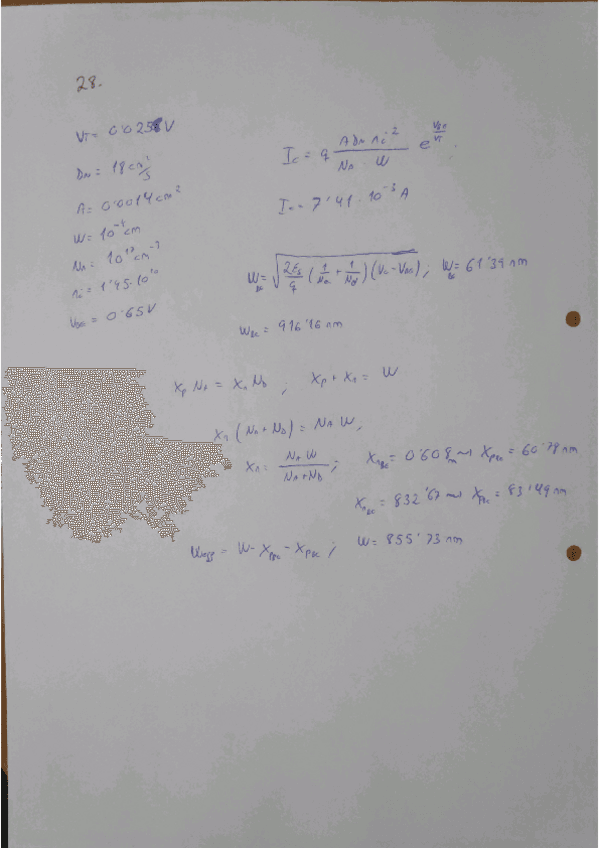 28.
V_T = 0'0258 V
D_n = 18 cm²/s
A = 0'0014 cm²
W = 10⁻⁴ cm
N_A = 10¹⁷ cm⁻³
n_i = 1'45·10¹⁰
V_BE = 0'65V
I_C = q (A D_n n_i²)/(N_A · W) e^(V_BE/V_T)
I_C = 7'41·10⁻³ A
W_BE = √((2ε_s/q)(1/N_A + 1/N_D)(V_C - V_BE)) ; W_BE = 61'39 nm
W_BC = 916'16 nm
X_p N_A = X_n N_D ; X_p + X_n = W
X_n (N_A + N_D) = N_A W,
X_n = (N_A W)/(N_A + N_D) ; X_nBE = 0'608 nm → X_pBE = 60'78 nm
X_nBC = 832'67 → X_pBC = 83'49 nm
W_eff = W - X_pBC - X_pBE ; W = 855'73 nm